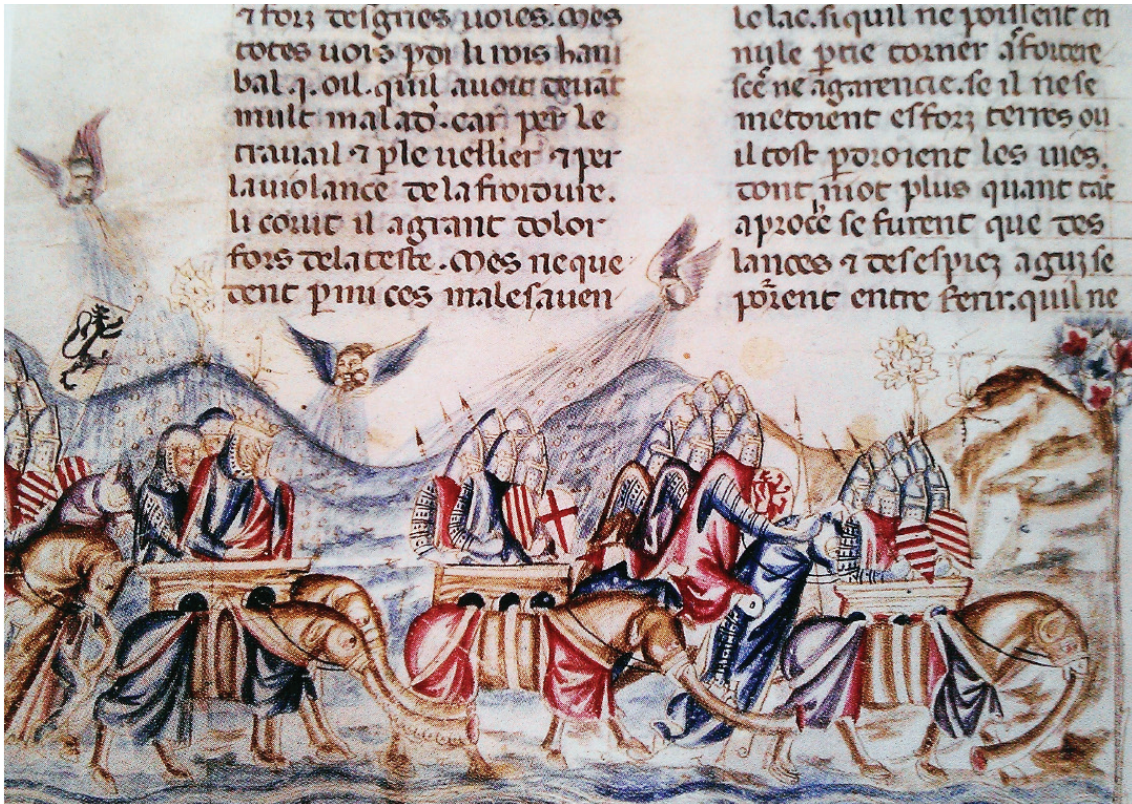 ⁊ forz desgries uoies. Mes
totes uois ꝑdi li rois hani
bal .i. oil. quil auoit deuāt
mult malad̓. car per le
trauail ⁊ ꝑle uellier ⁊ per
lauiolance de la froidure.
li corut il agrant dolor
fors delateste. Mes neque
dent ꝑmi ces malesauen
le lac. si quil ne poissent en
nule ꝑtie torner a fortere
sce ne agarencie. se il nese
metoient es forz terres ou
il tost ꝑdroient les uies.
dont niot plus quant tāt
aproce se furent que des
lances ⁊ desespiez aguz se
porent entre ferir. quil ne